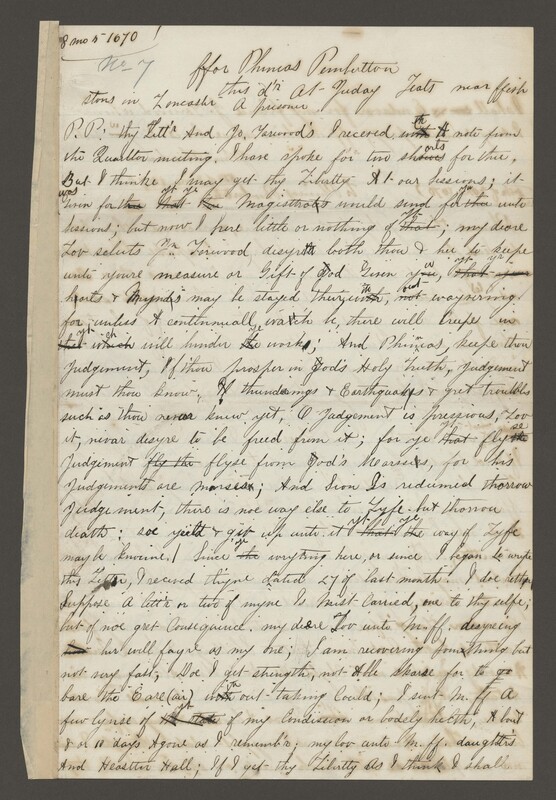 8 mo 5 - 1670 !
No 7
ffor Phineas Pemberton
this d'r At Juday Teats near ffish
stons in Loncashr A prisoner
P.P: thy Lett'r And Jo. Tirwood's I receved with A note from
the Quartter meeting. I have spoke for two shearts for thee,
But I thinke I may get thy Liberty At our Sessions; it
was Given for that the Magistrats would send for thee unto
Sessions; but now I here little or nothing of that; my deare
Lov saluts Jm Tirwood desyrth both thou & hee to keepe
unto youre measure or Gift of God Given you, that your
harts & Mynds may be stayed therwith, not waynring
for, unles A continuall watch be, there will Crepes in
that which will hinder the worke; And Phinias, keepe thou
Judgement, If thou prosper in Gods Holy truth, Judgement
must thou know, If thunderings & Earthquaks & gret troubls
such as thou never knew yet, O Judgement is precious, Lov
it, nivar desyre to be freed from it; for ye that flyse
Judgement fly the flyse from God's Marsies, for his
Judgements are marsies; And Sion Is redumed thorrow
Judgement, there is noe way else to Lyfe but thorrow
death; soe yeild & git up unto it that the way of Lyfe
may be knowne! Since the wryting here, or since I began to wryte
this Letter, I recived thyne dated 27 of last month. I doe
Suppose A lettr or two of myne Is Miscarried, one to thy selfe,
but of noe gret Consequence. my deare Lov unto M.ff. desyreing
her will fayre as my one; I am recovering somthing but
not very fast; Doe I get strength, not Able skarse for to go
bare the Eare (air) with out taking Could; I sent M. ff A
few lynse of my Condission or bodely helth, A bout
8 or 10 days Agone as I remembr; my lov unto M. ff. daughters
And Heastter Hall; If I get thy Liberty As I think I shall